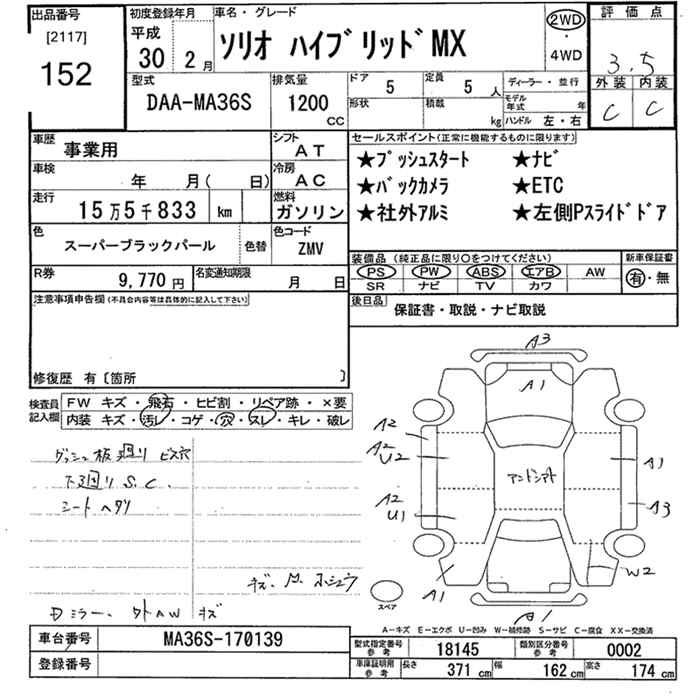 出品番号
[2117]
152
初度登録年月
平成
30 2月
車名・グレード
ソリオ ハイブリッドMX
2WD
・
4WD
評価点
3.5
外装 内装
C C
型式
DAA-MA36S
排気量
1200
CC
ドア 5
定員 5 人
形状
積載 kg
ディーラー・並行
モデル年式 年
ハンドル 左・右
車歴 事業用
シフト AT
車検 年 月( 日)
冷房 AC
走行 15万5千833 km
燃料 ガソリン
色 スーパーブラックパール
色替
色コード ZMV
R券 9,770 円
名変通知期限 月 日
セールスポイント(正常に機能するものに限ります)
★プッシュスタート ★ナビ
★バックカメラ ★ETC
★社外アルミ ★左側Pスライドドア
装備品 (純正品に限り○をつけてください)
新車保証書
PS PW ABS エアB AW
SR ナビ TV カワ
有・無
後日品
保証書・取説・ナビ取説
注意事項申告欄(不具合内容等は具体的に記入して下さい)
修復歴 有〔箇所 〕
検査員記入欄
FW キズ・飛石・ヒビ割・リペア跡・×要
内装 キズ・汚レ・コゲ・穴・スレ・キレ・破レ
ダッシュ板廻り ビス穴
下廻り S.C.
シートヘタリ
キズ.
Dミラー. タトAW キズ
A3
A1
A2
A2
U2
A1
A2
U1
A3
A1
W2
A1
スペア
A-キズ E-エクボ U-凹み W-補修跡 S-サビ C-腐食 XX-交換済
車台番号 MA36S-170139
登録番号
型式指定番号 参考 18145
類別区分番号 参考 0002
車庫証明用 参考 長さ 371 cm 幅 162 cm 高さ 174 cm